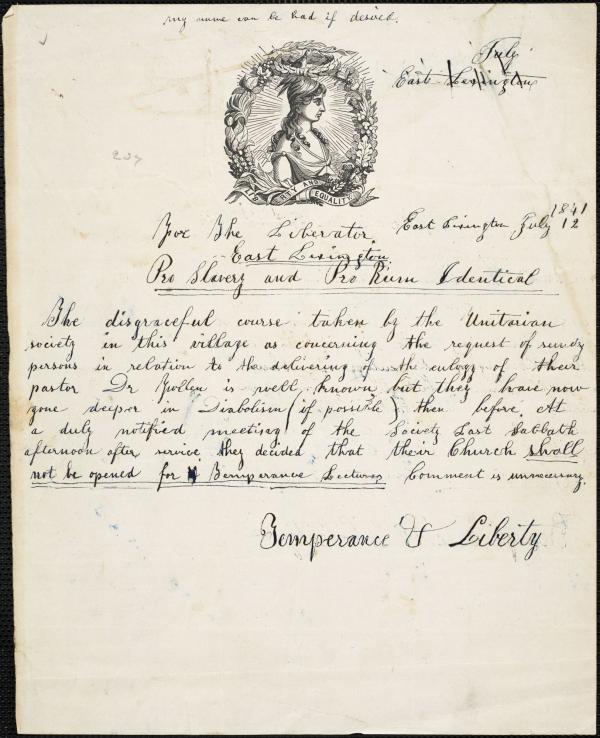 my name can be had if desired.
July
East Lexington
237
LIBERTY AND EQUALITY
1841
For The Liberator East Lexington July 12
East Lexington
Pro Slavery and Pro Rum Identical
The disgraceful course taken by the Unitarian
society in this village as concerning the request of sundry
persons in relation to the delivering of the eulogy of their
pastor Dr Follen is well known but they have now
gone deeper in Diabolism (if possible) then before. At
a duly notified meeting of the Society Last Sabbath
afternoon after service they decided that their Church shall
not be opened for Temperance Lectures Comment is unnecessary.
Temperance & Liberty